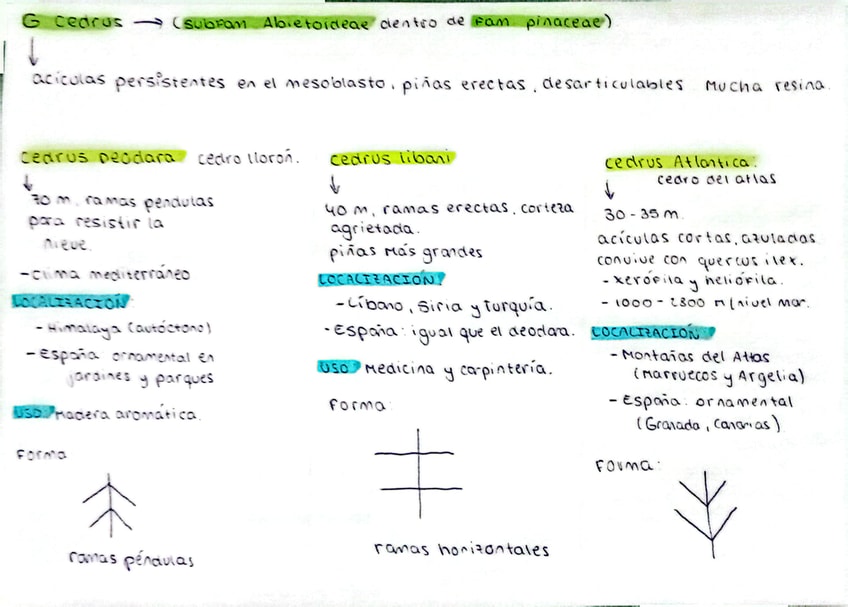 G Cedrus → (subfam. Abietoideae dentro de Fam. pinaceae)
acículas persistentes en el mesoblasto, piñas erectas, desarticulables. Mucha resina.
Cedrus Deodara cedro llorón.
70 m. ramas pendulas
para resistir la
nieve.
- Clima mediterráneo
LOCALIZACIÓN:
- Himalaya (autóctono)
- España ornamental en
jardines y parques
USO: Madera aromática.
Forma
ramas péndulas
Cedrus libani
40 m, ramas erectas, corteza
agrietada.
piñas más grandes
LOCALIZACIÓN:
- Líbano, Siria y Turquía.
- España: igual que el deodara.
USO: Medicina y carpintería.
Forma:
ramas horizontales
Cedrus Atlantica:
cedro del atlas
30-35 m.
acículas cortas, azuladas
convive con quercus ilex.
- xerófila y heliófila.
- 1000 - 2300 m/nivel mar.
LOCALIZACIÓN:
- Montañas del Atlas
(Marruecos y Argelia)
- España: ornamental
(Granada, Canarias)
Forma: